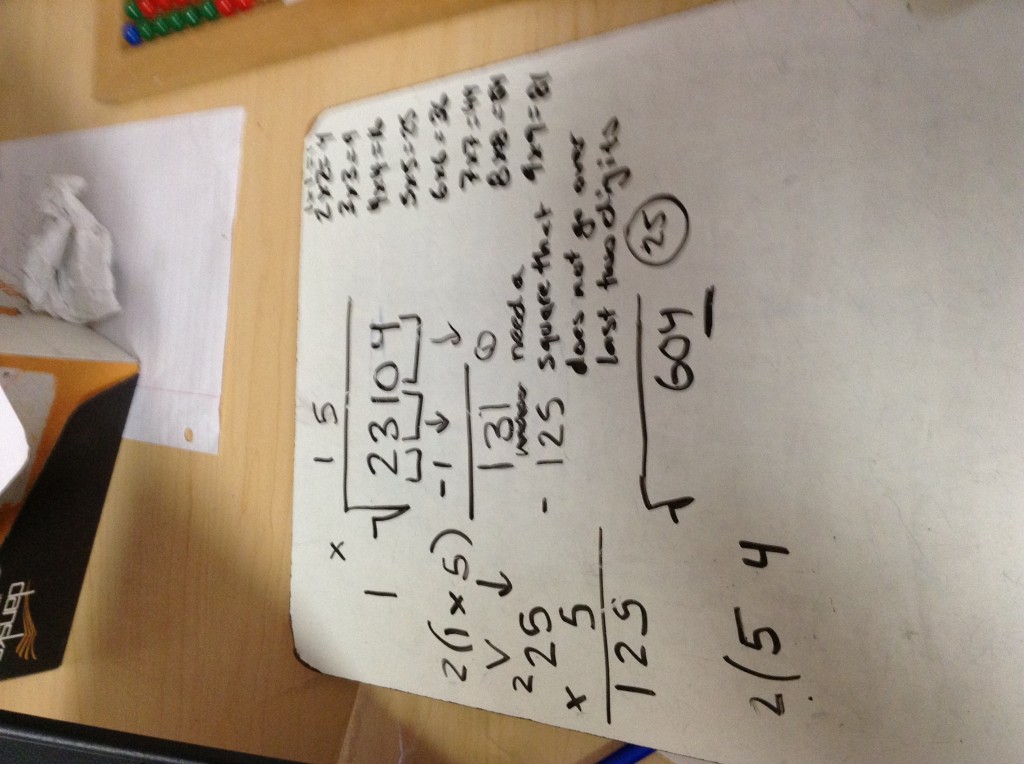 1x1=1
2x2=4
3x3=9
4x4=16
5x5=25
6x6=36
7x7=49
8x8=64
9x9=81
1 5
x
1 √23104
2(1x5) -1
131
need a
square that
does not go over
last two digits
25
2 25 - 125
x 5
125
√604
2(5 4
dansk